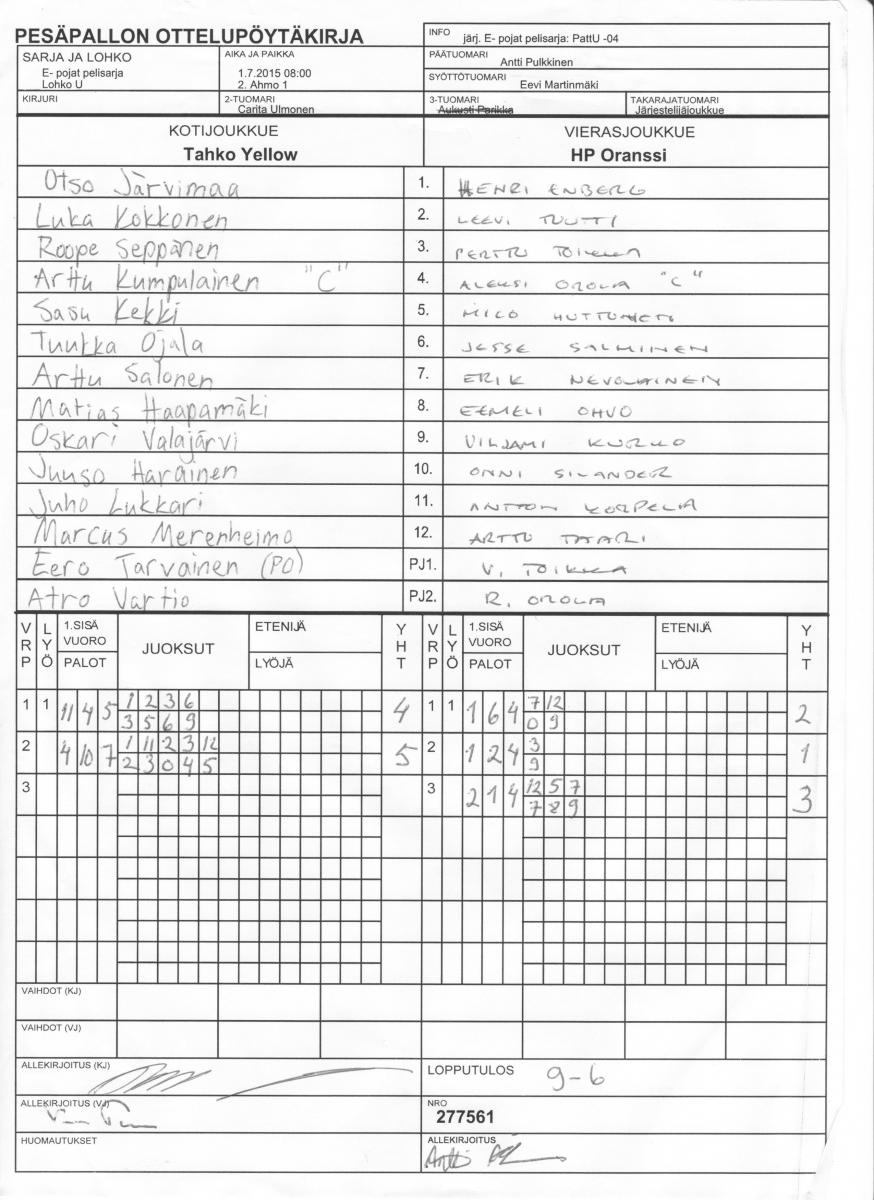 PESÄPALLON OTTELUPÖYTÄKIRJA
INFO järj. E- pojat pelisarja: PattU -04
SARJA JA LOHKO
E- pojat pelisarja
Lohko U
AIKA JA PAIKKA
1.7.2015 08:00
2. Ahmo 1
PÄÄTUOMARI Antti Pulkkinen
SYÖTTÖTUOMARI Eevi Martinmäki
KIRJURI
2-TUOMARI
Carita Ulmonen
3-TUOMARI
Aukusti Parikka
TAKARAJATUOMARI
Järjestelijäjoukkue
KOTIJOUKKUE VIERASJOUKKUE
Tahko Yellow HP Oranssi
Otso Järvimaa 1. HENRI ENBERG
Luka Kokkonen 2. LEEVI TUUTTI
Roope Seppänen 3. PERTTU TOIKKA
Arttu Kumpulainen "C" 4. ALEKSI OROLA "C"
Sasu Kekki 5. MILO HUTTUNEN
Tuukka Ojala 6. JESSE SALMINEN
Arttu Salonen 7. ERIK NEVOLAINEN
Matias Haapamäki 8. EEMELI OHVO
Oskari Valajärvi 9. VILJAMI KURKO
Juuso Haräinen 10. ONNI SILANDER
Juho Lukkari 11. ANTTON KORPELA
Marcus Merenheimo 12. ARTTU TAARI
Eero Tarvainen (PO) PJ1. V. TOIKKA
Atro Vartio PJ2. R. OROLA
VRP LYÖ 1.SISÄ VUORO PALOT JUOKSUT ETENIJÄ LYÖJÄ YHT VRP LYÖ 1.SISÄ VUORO PALOT JUOKSUT ETENIJÄ LYÖJÄ YHT
1 1 11 4 5 1 2 3 6 4 1 1 1 6 4 7 12 2
3 5 6 9 0 9
2 4 10 7 1 11 2 3 12 5 2 1 2 4 3 1
2 3 0 4 5 9
3 3 2 1 4 12 5 7 3
7 8 9
VAIHDOT (KJ)
VAIHDOT (VJ)
ALLEKIRJOITUS (KJ)
LOPPUTULOS 9-6
ALLEKIRJOITUS (VJ)
NRO
277561
HUOMAUTUKSET
ALLEKIRJOITUS
Antti